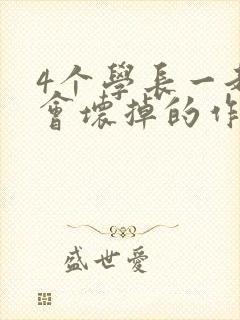 4个學長一
會壞掉的作
盛世愛